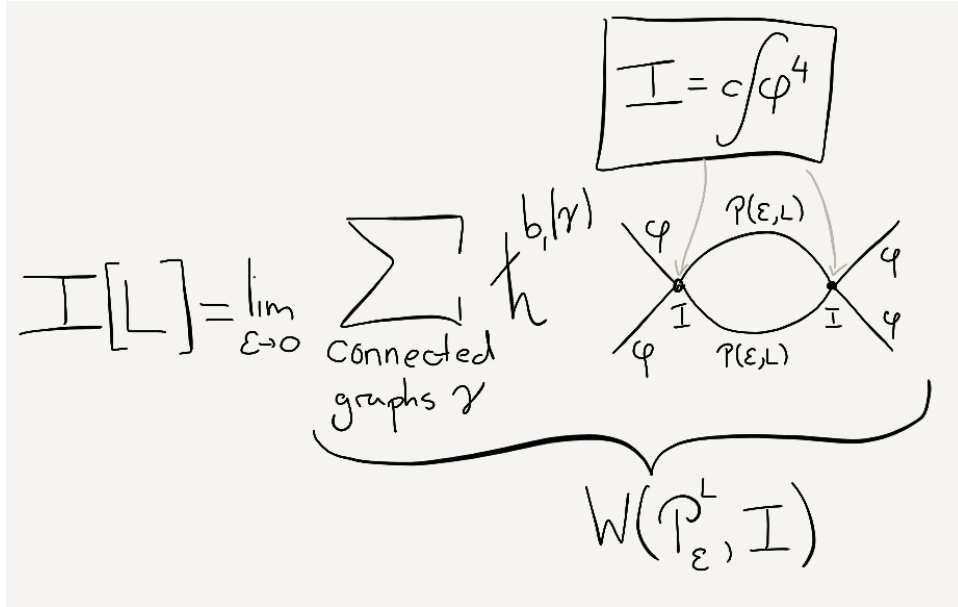 I = c∫φ⁴
I[L] = lim ε→0 Σ connected graphs γ ħ^{b₁(γ)}
φ P(ε,L) φ
I I
φ P(ε,L) φ
W(P_ε^L, I)